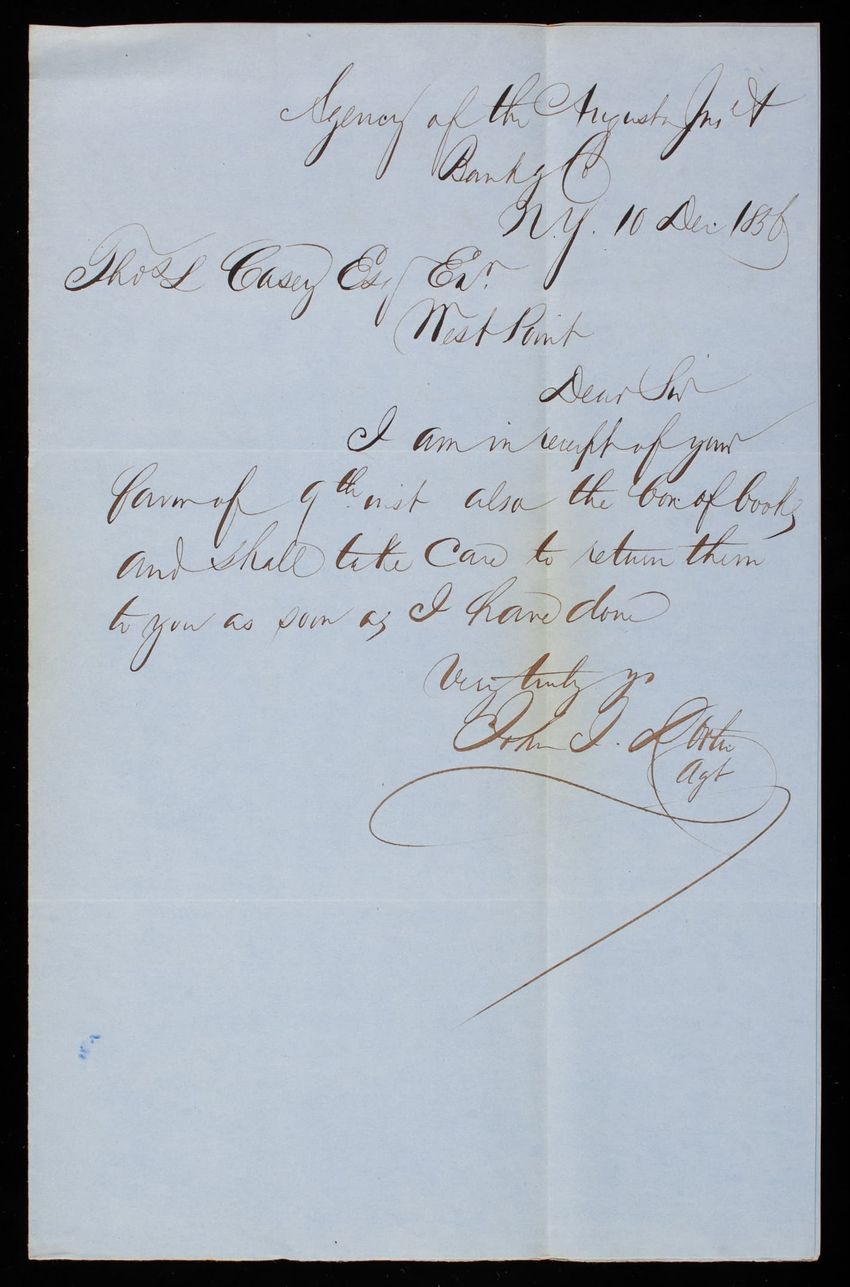 Agency of the Augusta Ins &
Bankg Co
N.Y. 10 Dec. 1856
Thos L Casey Esq Exr.
West Point
Dear Sir
I am in receipt of your
favor of 9th inst also the box of books
and shall take care to return them
to you as soon as I have done
Very truly yr
John J.
Agt